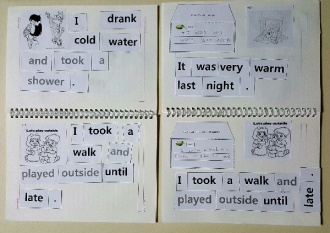 I drank
cold water
and took a
shower .
It was very warm
last night .
Let's play outside
I took a
walk and
played outside until
late .
Let's play outside
I took a walk and
played outside until
late .